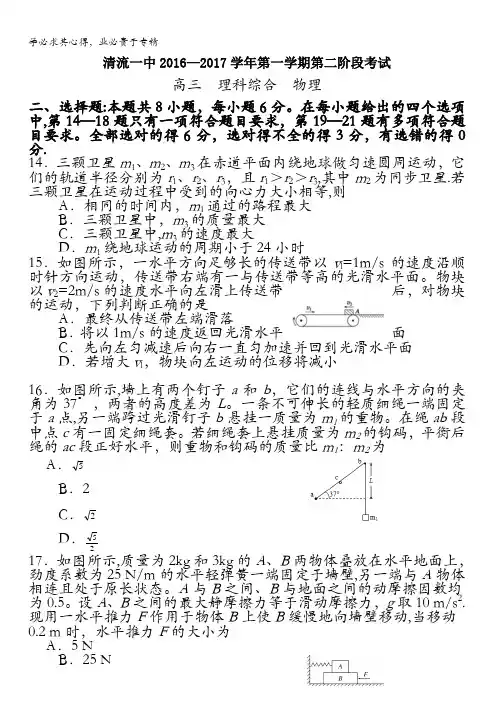 学必求其心得，业必贵于专精
清流一中2016—2017学年第一学期第二阶段考试
高三 理科综合 物理
二、选择题:本题共8小题，每小题6分。在每小题给出的四个选项
中,第14—18题只有一项符合题目要求，第19—21题有多项符合题
目要求。全部选对的得6分，选对得不全的得3分，有选错的得0
分.
14．三颗卫星m1、m2、m3在赤道平面内绕地球做匀速圆周运动，它
们的轨道半径分别为r1、r2、r3，且r1＞r2＞r3,其中m2为同步卫星.若
三颗卫星在运动过程中受到的向心力大小相等,则
A．相同的时间内，m1通过的路程最大
B．三颗卫星中，m3的质量最大
C．三颗卫星中,m3的速度最大
D．m1绕地球运动的周期小于24小时
15．如图所示，一水平方向足够长的传送带以v1=1m/s的速度沿顺
时针方向运动，传送带右端有一与传送带等高的光滑水平面。物块
以v2=2m/s的速度水平向左滑上传送带 后，对物块
的运动，下列判断正确的是
A．最终从传送带左端滑落
B．将以1m/s的速度返回光滑水平 面
C．先向左匀减速后向右一直匀加速并回到光滑水平面
D．若增大v1，物块向左运动的位移将减小
v1 v2 A
16．如图所示,墙上有两个钉子a和b，它们的连线与水平方向的夹
角为37°，两者的高度差为L。一条不可伸长的轻质细绳一端固定
于a点,另一端跨过光滑钉子b悬挂一质量为m1的重物。在绳ab段
中点c有一固定细绳套。若细绳套上悬挂质量为m2的钩码，平衡后
绳的ac段正好水平，则重物和钩码的质量比m1：m2为
A．√5
B．2
C．√2
D．√5/2
b
c
L
a 37°
m1
17．如图所示,质量为2kg和3kg的A、B两物体叠放在水平地面上，
劲度系数为25 N/m的水平轻弹簧一端固定于墙壁,另一端与A物体
相连且处于原长状态。A与B之间、B与地面之间的动摩擦因数均
为0.5。设A、B之间的最大静摩擦力等于滑动摩擦力，g取10 m/s².
现用一水平推力F作用于物体B上使B缓慢地向墙壁移动,当移动
0.2 m时，水平推力F的大小为
A．5 N
B．25 N
A
B F